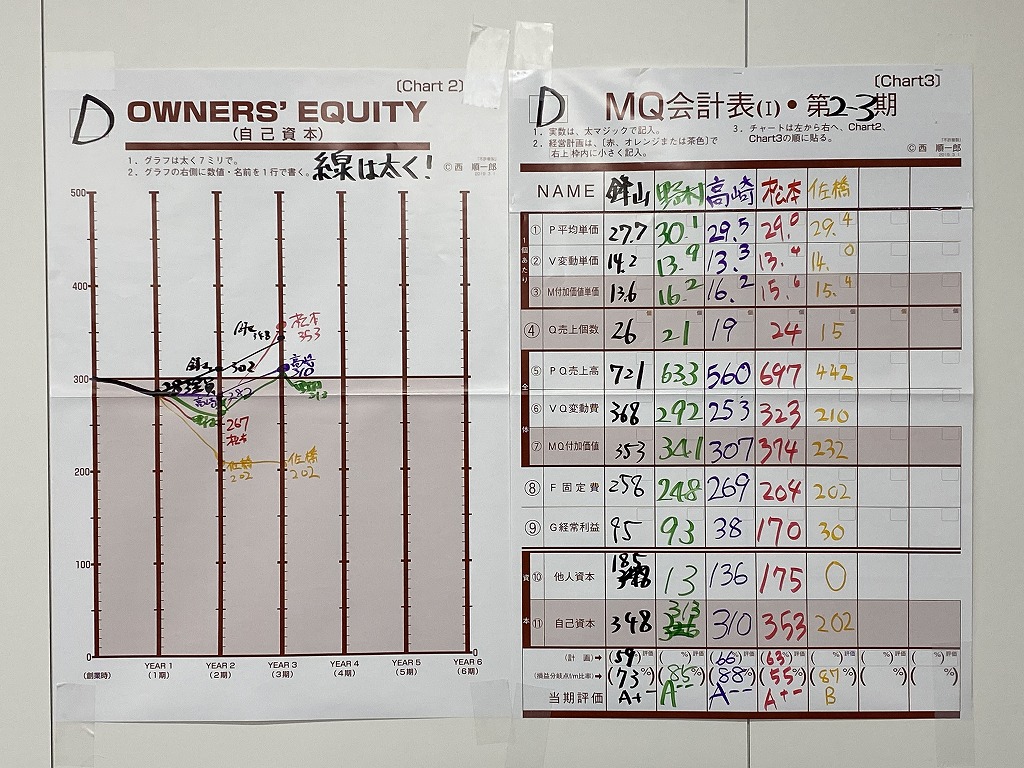 (Chart 2)
D OWNERS' EQUITY
(自己資本)
1. グラフは太く7ミリで。
2. グラフの右側に数値・名前を1行で書く。
線は太く!
© 西 順一郎
500
400
300
200
100
0
348
松本
353
302
高崎
310
313
283全員
高崎
282
267
松本
佐橋
202
佐橋
202
(創業時)
YEAR 1
(1期)
YEAR 2
(2期)
YEAR 3
(3期)
YEAR 4
(4期)
YEAR 5
(5期)
YEAR 6
(6期)
(Chart3)
D MQ会計表(I)・第2-3期
1. 実数は、太マジックで記入。
2. 経営計画は、(赤、オレンジまたは茶色)で
右上枠内に小さく記入。
3. チャートは左から右へ、Chart2、
Chart3の順に貼る。
© 西 順一郎
NAME 鉾山 野村 高崎 松本 佐橋
1個あたり
① P平均単価 27.7 30.1 29.5 29.0 29.4
② V変動単価 14.2 13.9 13.3 13.4 14.0
③ M付加価値単価 13.6 16.2 16.2 15.6 15.4
④ Q売上個数 26 21 19 24 15
全体
⑤ PQ売上高 721 633 560 697 442
⑥ VQ変動費 368 292 253 323 210
⑦ MQ付加価値 353 341 307 374 232
⑧ F固定費 258 248 269 204 202
⑨ G経常利益 95 93 38 170 30
資本
⑩ 他人資本 185 13 136 175 0
⑪ 自己資本 348 313 310 353 202
(計 画)→ (59) ( %) (66) (63) ( %) ( %) ( %)
(損益分岐点f/m比率)→ (73%) (85%) (88%) (55%) (87%) ( %) ( %)
当期評価 A+- A-- A-- A+- B